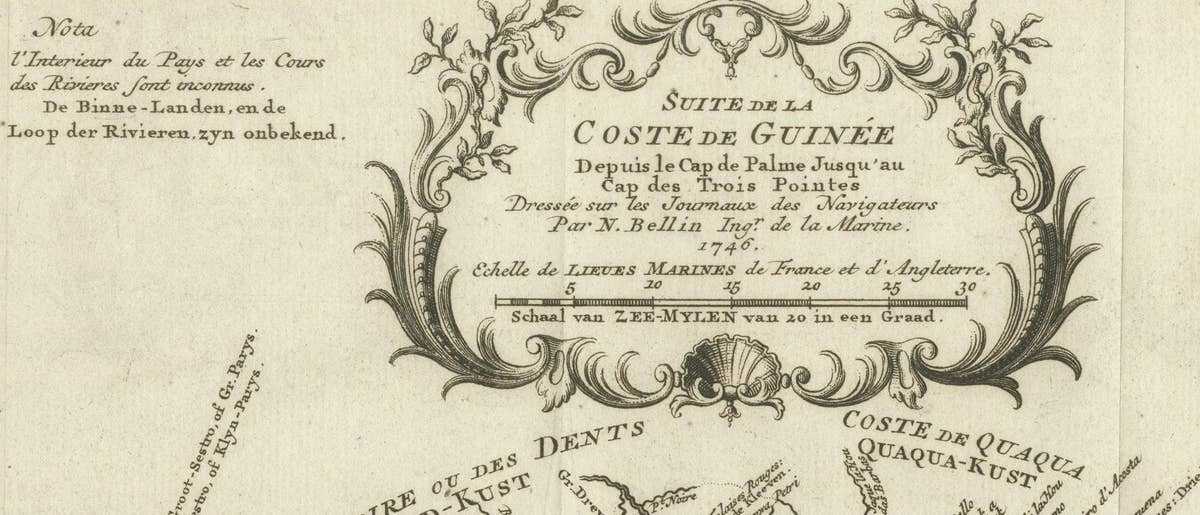 Nota
l'Interieur du Pays et les Cours
des Rivieres sont inconnus.
De Binne-Landen, en de
Loop der Rivieren, zyn onbekend.
SUITE DE LA
COSTE DE GUINÉE
Depuis le Cap de Palme Jusqu'au
Cap des Trois Pointes
Dressée sur les Journaux des Navigateurs
Par N. Bellin Ingr. de la Marine.
1746.
Echelle de LIEUES MARINES de France et d'Angleterre.
5 10 15 20 25 30
Schaal van ZEE-MYLEN van 20 in een Graad.
Groot-Sestro, of Gr. Parys.
Sestro, of Klyn-Parys.
IRE OU DES DENTS
D-KUST
COSTE DE QUAQUA
QUAQUA-KUST
Gr. Drew
Pte. Noire
laises Rouges:
de Kleeven.
Petri
la Hou
d'Acosta